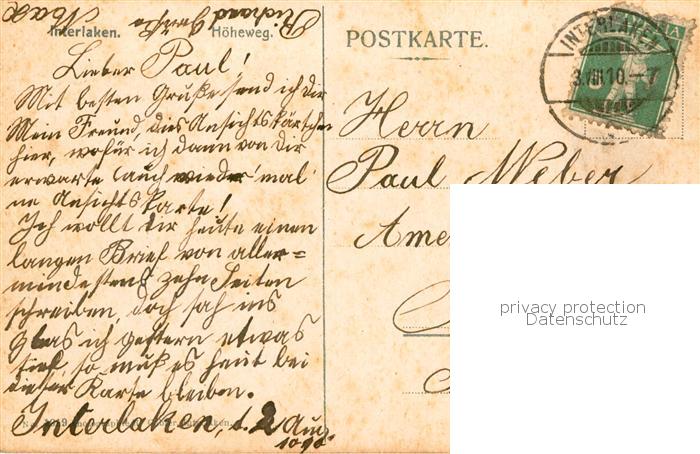 Max
Richard Grüße
Interlaken. Höheweg.
Lieber Paul!
Mit besten Gruße send ich dir
Mein Freund, dies Ansichtskärtchen
hier, wofür ich dann von dir
erwarte (auch wieder 'mal
'ne Ansichtskarte!
Ich wollt dir heute einen
langen Brief von aller=
mindestens zehn Seiten
schreiben, doch sah ins
Glas ich gestern etwas
tief, so muß es heut bei
dieser Karte bleiben.
Interlaken, d. 2 Aug.
1910
POSTKARTE.
INTERLAKEN
3.VIII.10.–7
HELVETIA
Herrn
Paul Weber
Ame
privacy protection
Datenschutz